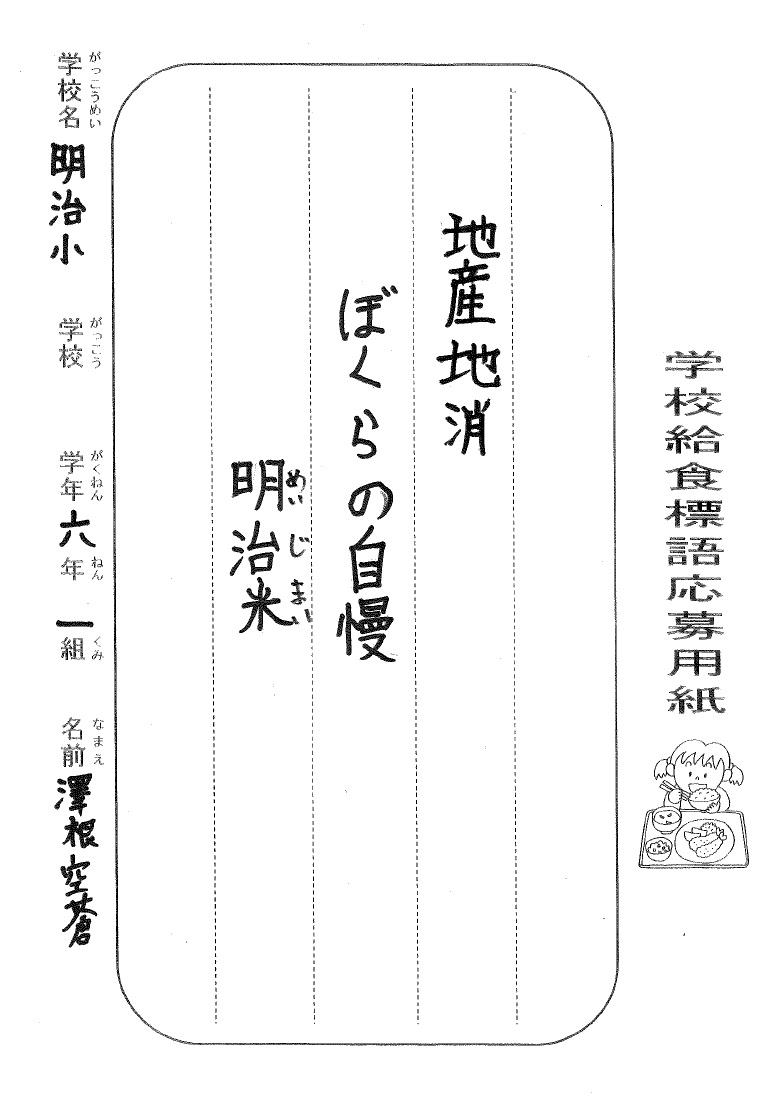 学校給食標語応募用紙
地産地消
ぼくらの自慢
明治米
めいじまい
がっこうめい　がっこう　がくねん　ねん　くみ　なまえ
学校名　明治小　学校　学年　六年　一組　名前　澤根空蒼